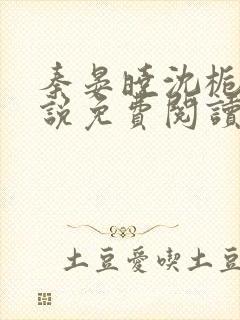 秦晏曉沈栀
說免費閱讀
土豆愛喫土豆